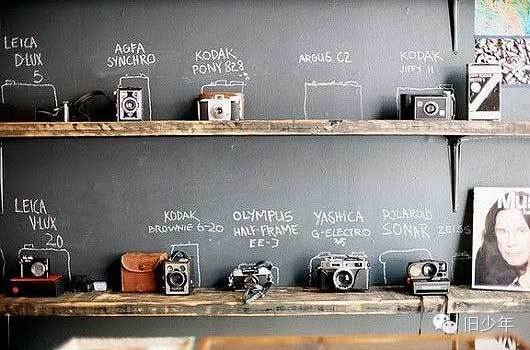 LEICA
D-LUX
5
AGFA
SYNCHRO
KODAK
PONY 828
ARGUS C2
KODAK
JIFFY 11
LEICA
V-LUX
20
KODAK
BROWNIE 6-20
OLYMPUS
HALF-FRAME
EE-3
YASHICA
G-ELECTRO
35
POLAROID
SONAR
ZEISS
旧少年